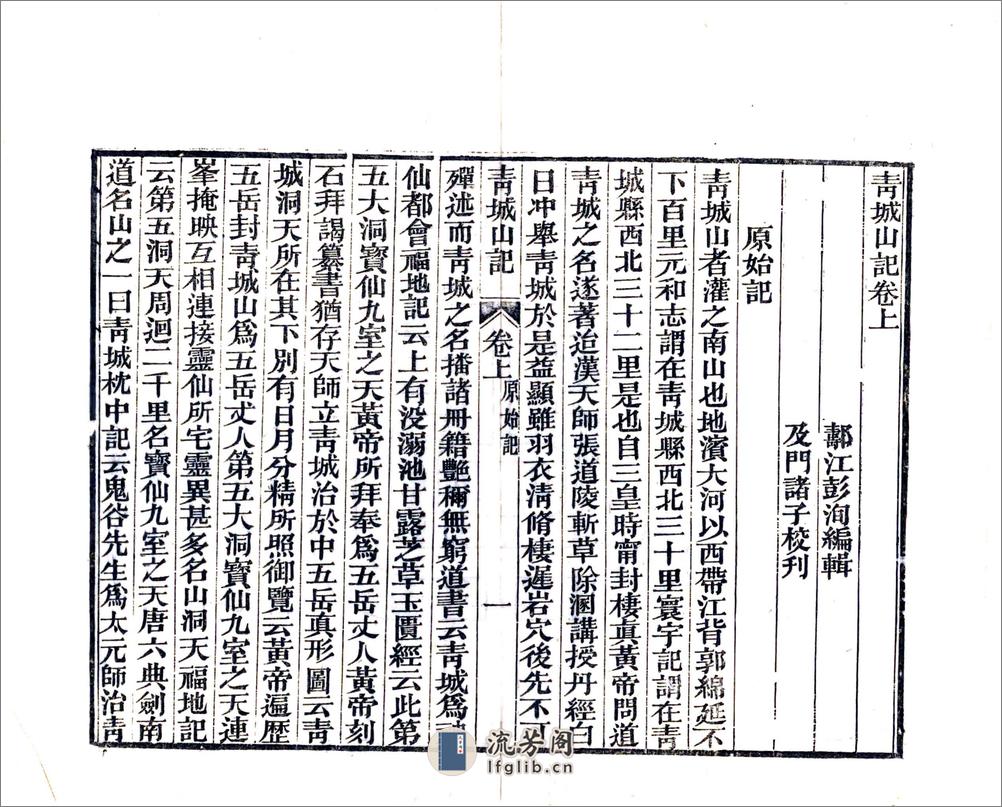 青城山記卷上
鄢江彭洵編輯
及門諸子校刋
原始記
青城山者灌之南山也地濱大河以西帶江背郭綿延不
下百里元和志謂在青城縣西北三十里寰宇記謂在青
城縣西北三十二里是也自三皇時甯封棲眞黃帝問道
青城之名遂著迨漢天師張道陵斬草除溷講授丹經白
日冲舉青城於是益顯雖羽衣淸脩棲遲岩穴後先不可
青城山記
卷上
原始記
一
殫述而青城之名播諸冊籍艷稱無窮道書云青城爲
仙都會福地記云上有没溺池甘露芝草玉匱經云此第
五大洞寶仙九室之天黃帝所拜奉爲五岳丈人黃帝刻
石拜謁纂書猶存天師立青城治於中五岳眞形圖云青
城洞天所在其下別有日月分精所照御覽云黃帝遍歴
五岳封青城山爲五岳丈人第五大洞寶仙九室之天連
峯掩映互相連接靈仙所宅靈異甚多名山洞天福地記
云第五洞天周迴二千里名寶仙九室之天唐六典劍南
道名山之一曰青城枕中記云鬼谷先生爲太元師治青
流芳阁
lfglib.cn